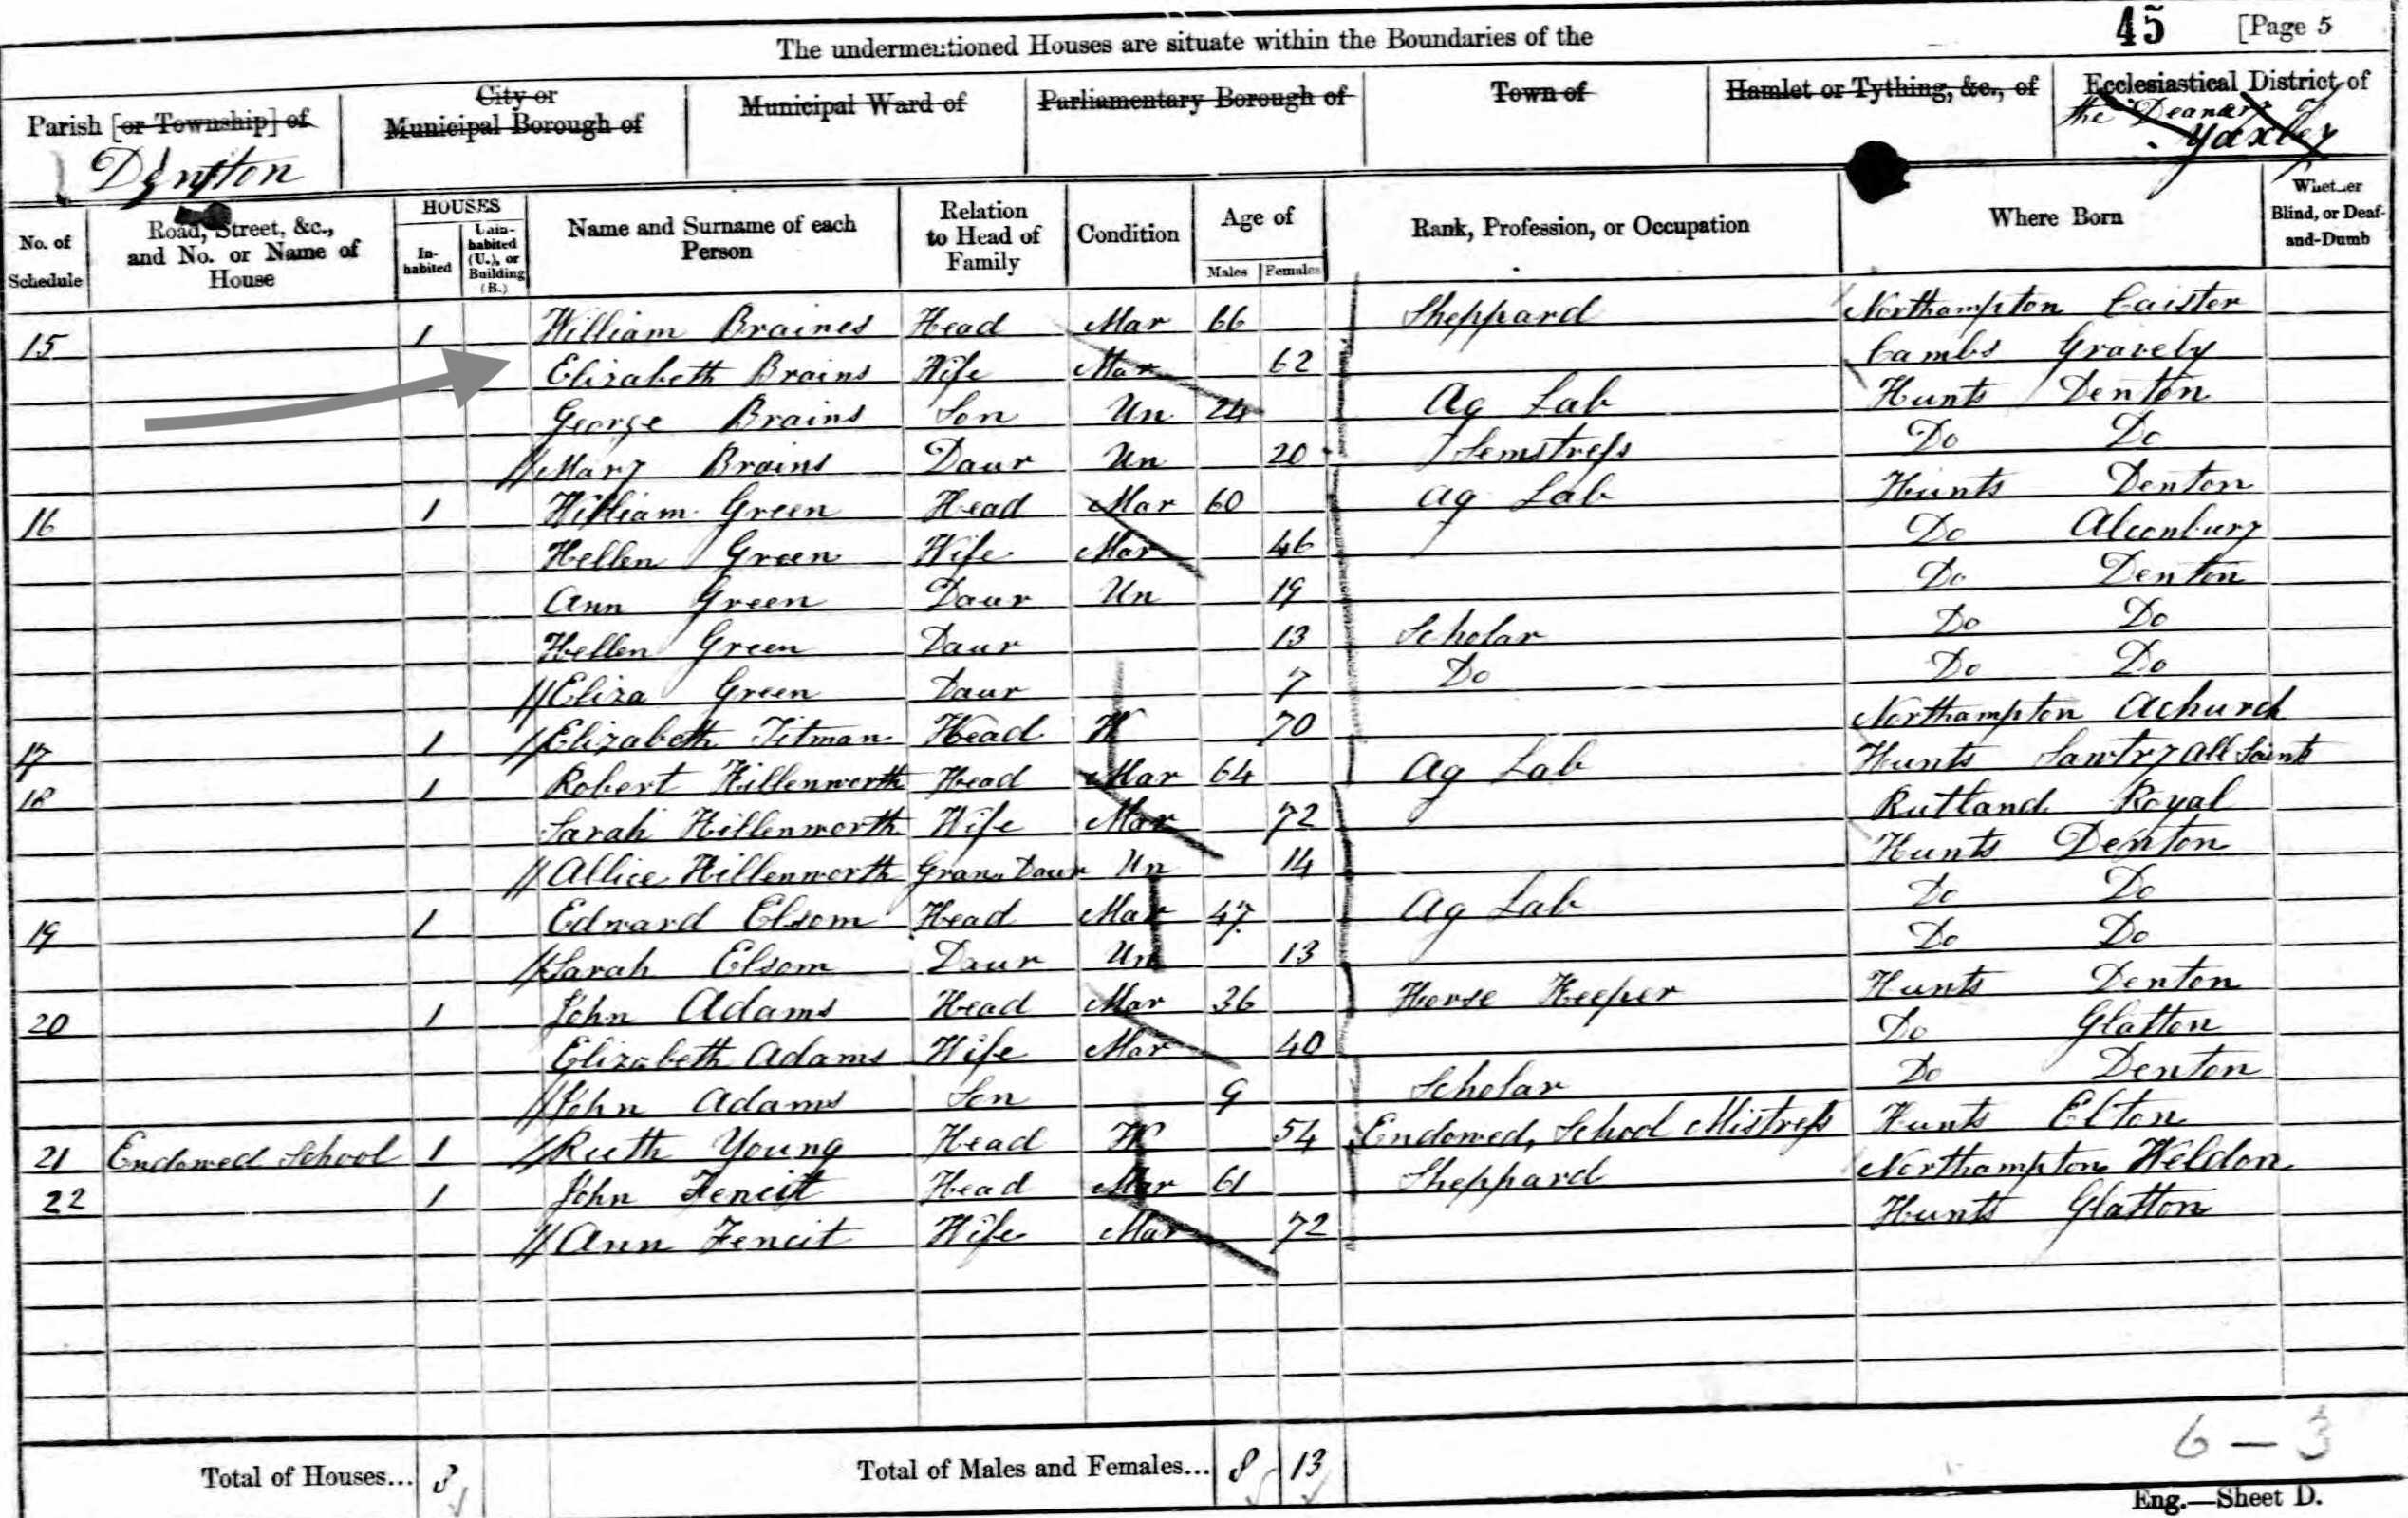 45 [Page 5
The undermentioned Houses are situate within the Boundaries of the
Parish [or Township] of
City or Municipal Borough of
Municipal Ward of
Parliamentary Borough of
Town of
Hamlet or Tything, &c., of
Ecclesiastical District of
the Deanery of
Yaxley
Denton
No. of Schedule
Road, Street, &c., and No. or Name of House
HOUSES
In-habited
Unin-habited (U.), or Building (B.)
Name and Surname of each Person
Relation to Head of Family
Condition
Age of
Males Females
Rank, Profession, or Occupation
Where Born
Whether Blind, or Deaf-and-Dumb
15 1 William Braines Head Mar 66 Sheppard Northampton Caister
Elizabeth Brains Wife Mar 62 Cambs Gravely
George Brains Son Un 24 Ag Lab Hunts Denton
Mary Brains Daur Un 20 Semstress Do Do
16 1 William Green Head Mar 60 Ag Lab Hunts Denton
Hellen Green Wife Mar 46 Do Alconbury
Ann Green Daur Un 19 Do Denton
Hellen Green Daur 13 Scholar Do Do
Eliza Green Daur 7 Do Do Do
17 1 Elizabeth Titman Head W 70 Northampton Achurch
18 1 Robert Hillenworth Head Mar 64 Ag Lab Hunts Sawtry All Saints
Sarah Hillenworth Wife Mar 72 Rutland Royal
Allice Hillenworth Gran Daur Un 14 Hunts Denton
19 1 Edward Elsom Head Mar 47 Ag Lab Do Do
Sarah Elsom Daur Un 13 Do Do
20 1 John Adams Head Mar 36 Horse Keeper Hunts Denton
Elizabeth Adams Wife Mar 40 Do Glatton
John Adams Son 9 Scholar Do Denton
21 Endowed School 1 Ruth Young Head W 54 Endowed School Mistress Hunts Elton
22 1 John Feneit Head Mar 61 Sheppard Northampton Weldon
Ann Feneit Wife Mar 72 Hunts Glatton
6 — 3
Total of Houses... 8 Total of Males and Females... 8 13
Eng.—Sheet D.